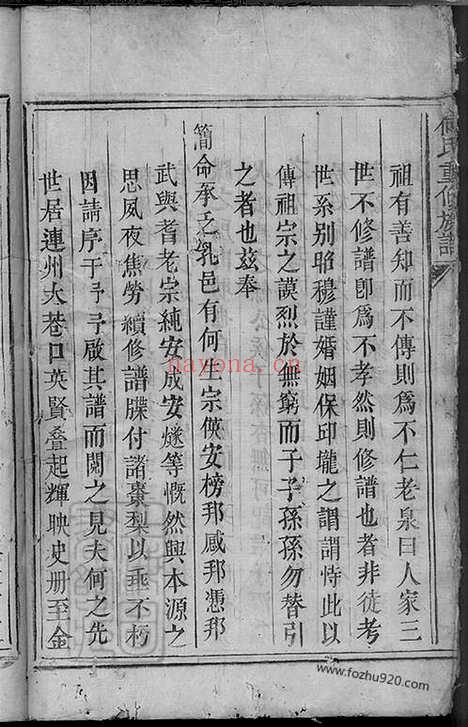 何氏重修族譜
祖有善知而不傳則爲不仁老泉曰人家三
世不修譜卽爲不孝然則修譜也者非徒考
世系别昭穆謹婚姻保邱壠之謂謂恃此以
傳祖宗之謨烈於無窮而子子孫孫勿替引
之者也茲奉
簡命承乏乳邑有何生宗俠安榜邦咸邦憑邦
武與耆老宗純安成安燧等慨然興本源之
思夙夜焦勞續修譜牒付諸棗梨以垂不朽
因請序于予予啟其譜而閱之見夫何之先
世居連州大巷口英賢疊起輝映史册至金
nayona.cn
www.fozhu920.com